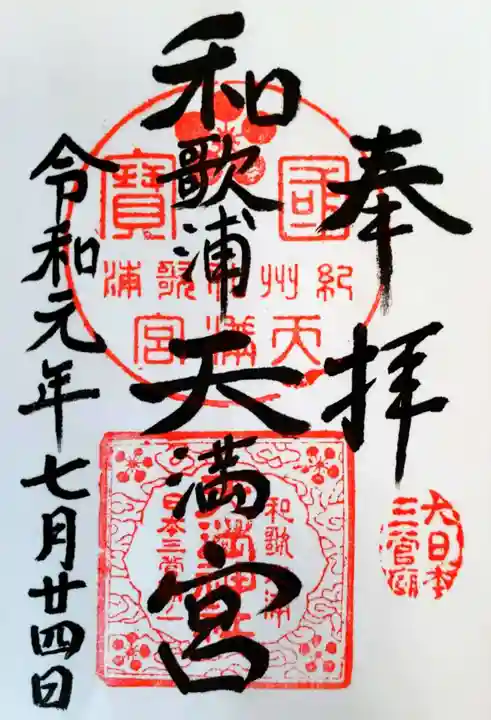 奉拝
和歌浦天満宮
令和元年七月廿四日
國寳
紀州和歌浦
天満宮
和歌浦
天満神社
日本三菅廟之一
大日本
三菅廟